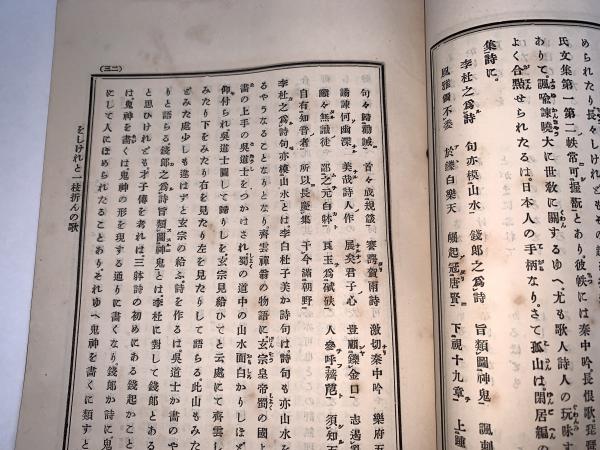 められたり長々し
氏文集第一第二帙常可握翫とあり。彼帙には秦中吟。長恨歌。琵
ありて諷諭諫曉大に世敎に關するゆへ。尤も歌人詩人の玩味す
よく合點せられたるは。日本人の手柄なり。さて孤山は。閑居編の
集詩に。
李杜之爲詩 句亦模山水 錢郎之爲詩 旨類圖神鬼 諷刺
風雅實不委 於鑠白樂天 崛起冠唐賢 下視十九章 上踵
(二三)
句々歸勸誡 首々成規箴 謇諤賀雨詩 激切秦中吟 樂府五
諷諫何幽深 美哉詩人作 展矣君子心 豈顧鑠金口 志遏
齷々無識徒 鄙之元白躰 良玉爲碔砆 人參呼薺苨 須知
自有知音者 所以長慶集 于今滿朝野
李杜之爲詩句亦模山水とは李白杜子美か詩句は詩句も亦山水を
るやうなることなりとなり齊雲禪翁の物語に玄宗皇帝蜀の國よ
畫の上手の呉道士をつかはされ蜀の道中の山水面白かりしほ
仰付られ呉道士下圖して歸りしを玄宗見給ひてと云處にて齊雲し
みたり下をみたり右を見たり左を見たりして語らる此山もみた
とみた處少しも違はずと玄宗の給ふ詩を作るは呉道士か畫のや
りと語らる錢郎之爲詩旨類圖神鬼とは李杜に對して錢郎とある
と思ひけれども才子傳を考れは三躰詩の初めにある錢起かこと
は鬼神を書くは鬼神の形を現する通りに書くなり錢郎か詩に鬼
にして人にほめられたることありそれゆへ鬼神を書くに類すと
をしけれと一枝折んの歌